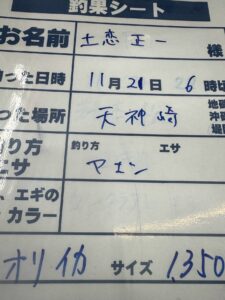 釣果シート
お名前 土恋正一 様
った日時 11月21日 26時頃
った場所 天神崎 地磯
沖磯
堤防
り方 釣り方 エサ
エサ ヤエン
、エギの
カラー
オリイカ サイズ 1,350